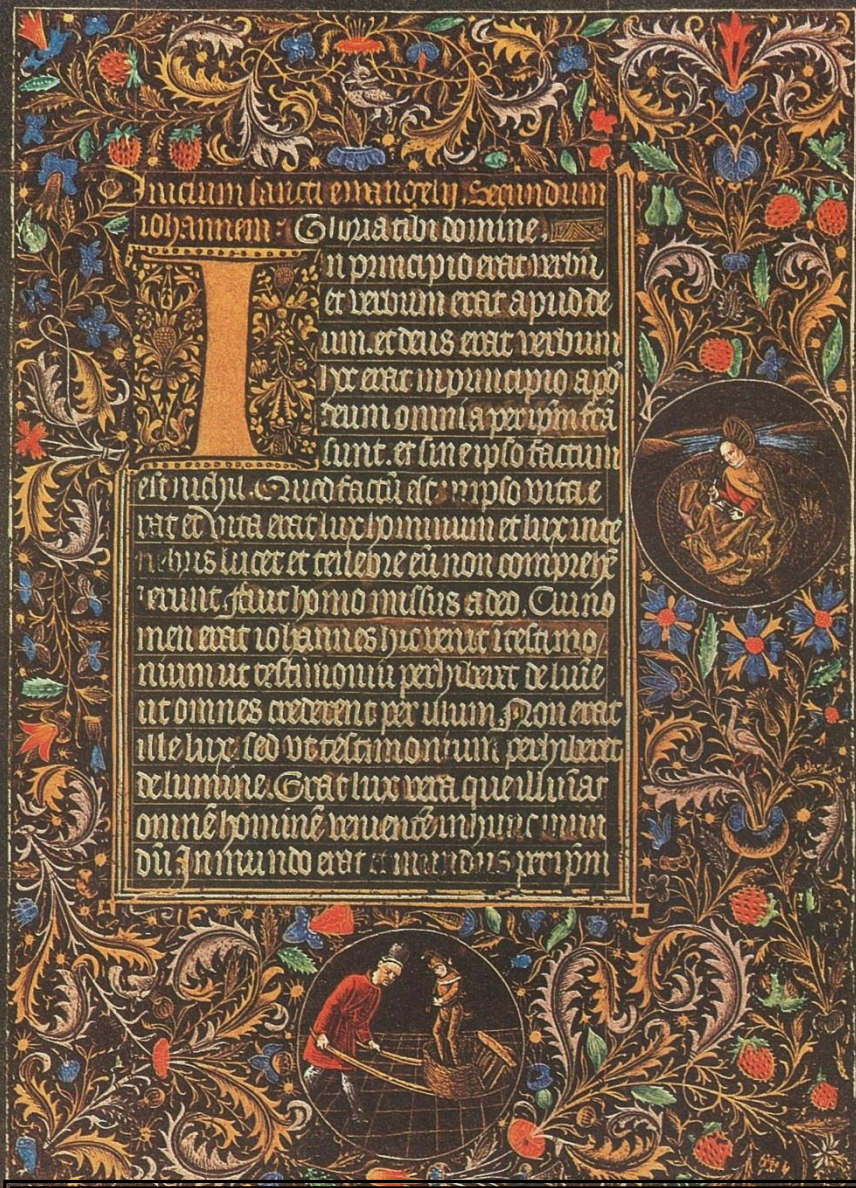 Inicium sancti euuangelij Secundum
iohannem: Gloria tibi domine.
In principio erat verbū
et verbum erat apud de
um. et deus erat verbum
hoc erat in principio apd̄
deum omnia per ip̄m fc̄a
sunt. et sine ipso factum
est nichil. Quod factū est in ipso vita e
rat et vita erat lux hominum et lux in te
nebris lucet et tenebre eā non comprehē
derunt. fuit homo missus a deo. Cui no
men erat iohannes hic venit ī testimo
nium ut testimoniū perhiberet de lumīe
ut omnes crederent per illum. Non erat
ille lux sed vt testimonium perhiberet
de lumine. Erat lux vera que illuīat
omnē hominē venientē in hunc mun
dū In mundo erat et mundus per ip̄m